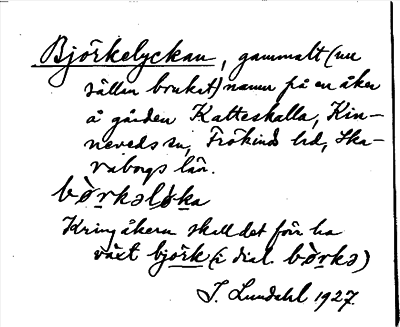 Björkelyckan, gammalt (nu
sällan brukat) namn på en åker
å gården Katteskalla, Kin-
neveds sn, Frökinds hd, Ska-
raborgs län.
bò̱rkəlø̀ka
Kring åkern skall det förr ha
växt björk (i dial. bò̱rkə)
J. Lundahl 1927.